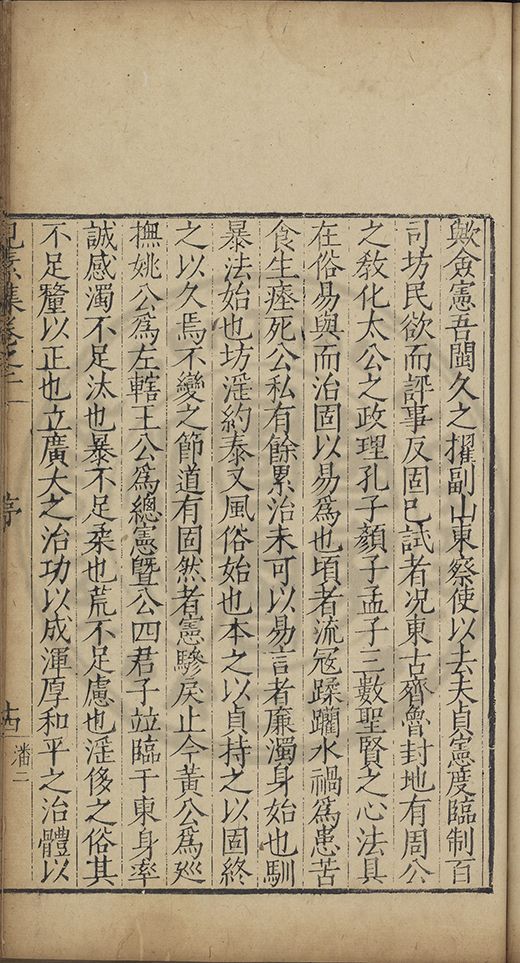 歟僉憲吾閩久之擢副山東察使以去夫貞憲度臨制百
司坊民欲而評事反固已試者况東古齊魯封地有周公
之教化太公之政理孔子顏子孟子三數聖賢之心法具
在俗易與而治固以易爲也頃者流冦蹂躪水禍爲患苦
食生瘗死公私有餘累治未可以易言者廉濁身始也馴
暴法始也坊淫約泰又風俗始也本之以貞持之以固終
之以久焉不變之節道有固然者憲驂戾止今黃公爲廵
撫姚公爲左轄王公爲總憲曁公四君子竝臨于東身率
誠感濁不足汰也暴不足柔也荒不足慮也淫侈之俗其
不足釐以正也立廣大之治功以成渾厚和平之治體以
見素集卷之二
序
十四
潘二